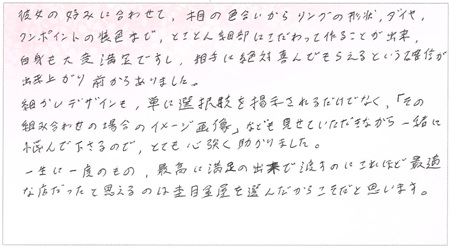 彼女の好みに合わせて、木目の色合いからリングの形状、ダイヤ、
ワンポイントの装色まで、とことん細部にこだわって作ることが出来、
自身も大変満足ですし、相手に絶対喜んでもらえるという確信が
出来上がり前からありました。
細かしデザインも、単に選択肢を掲示されるだけでなく、「その
組み合わせの場合のイメージ画像」なども見せていただきながら一緒に
悩んで下さるので、とても心強く助かりました。
一生に一度のもの、最高に満足の出来で渡すのにこれほど最適
な店だったと思えるのは杢目金屋を選んだからこそだと思います。